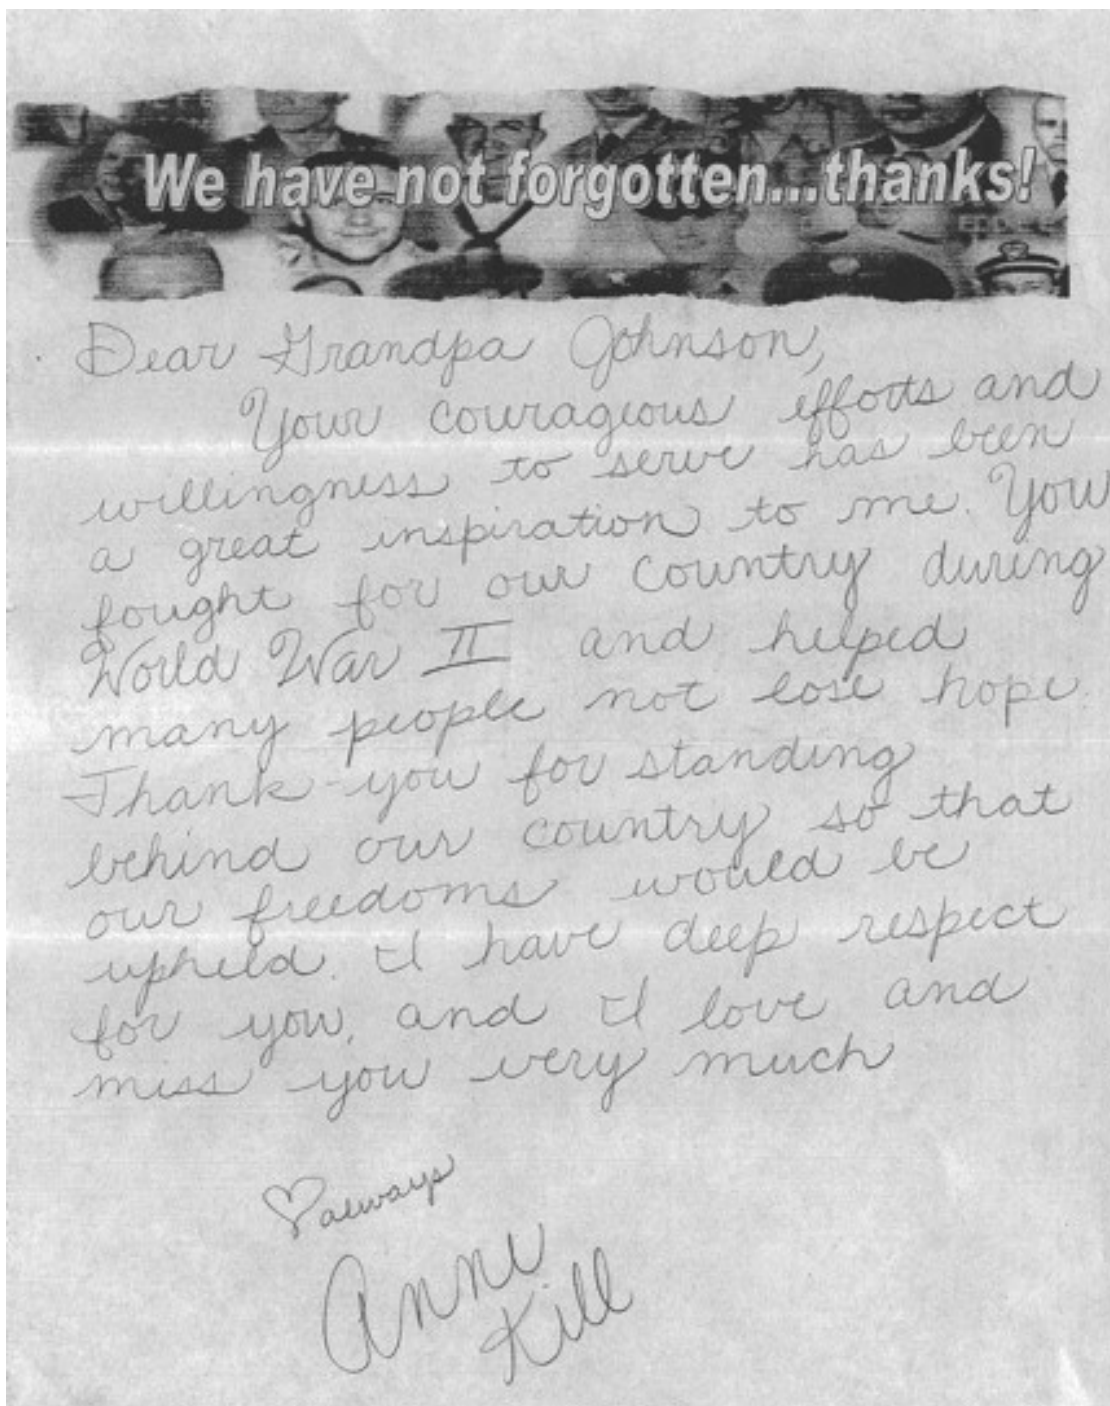 We have not forgotten...thanks!
Dear Grandpa Johnson,
Your courageous efforts and
willingness to serve has been
a great inspiration to me. You
fought for our country during
World War II and helped
many people not lose hope.
Thank-you for standing
behind our country so that
our freedoms would be
upheld. I have deep respect
for you, and I love and
miss you very much
♡ always
Anne
Kill